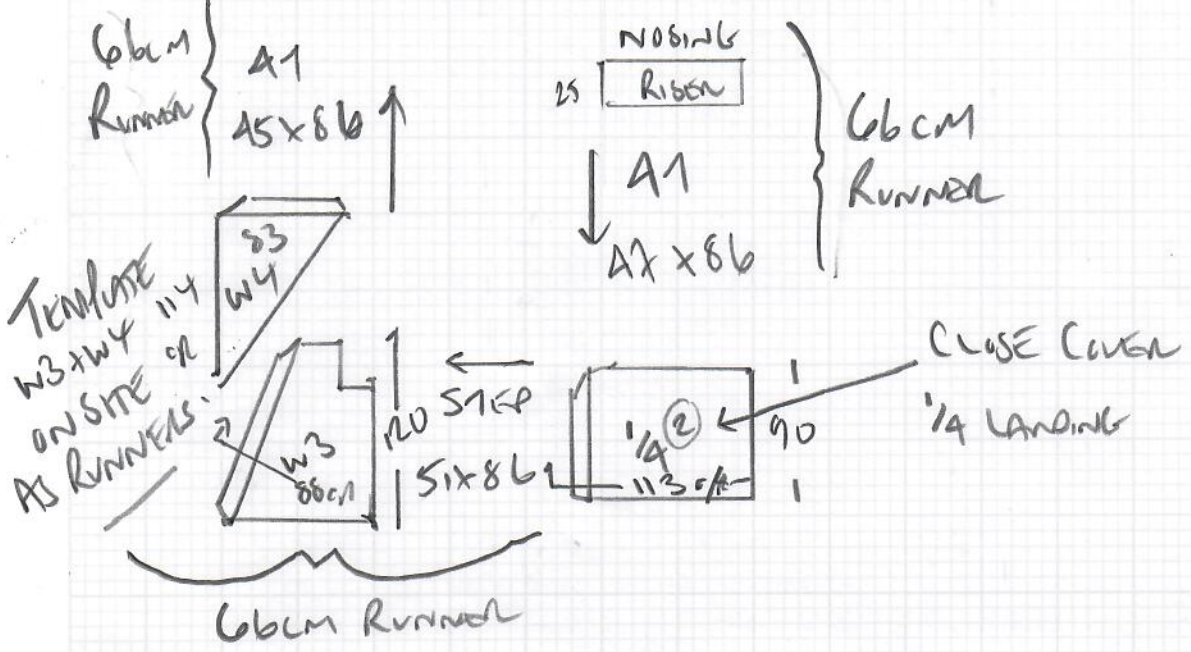 66CM
RUNNER
A1
45 X 86
NOSING
RISER
25
A1
47 X 86
66CM
RUNNER
83
W4
114
TEMPLATE
W3+W4
ON SITE OR
AS RUNNERS.
W3
88cm
120
STEP
51 X 86
1/4 2
113 c/n
90
CLOSE COVER
1/4 LANDING
66CM RUNNER